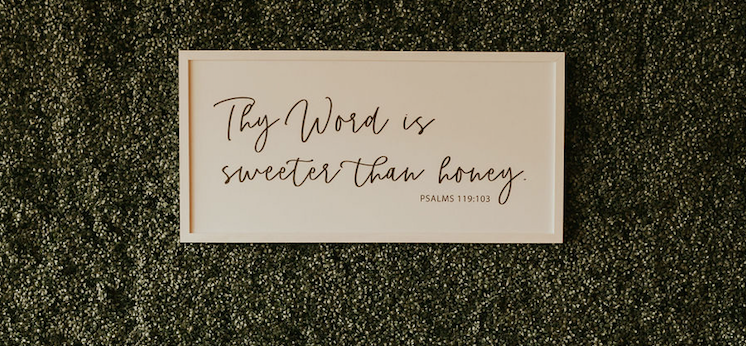 Thy Word is
sweeter than honey.
PSALMS 119:103